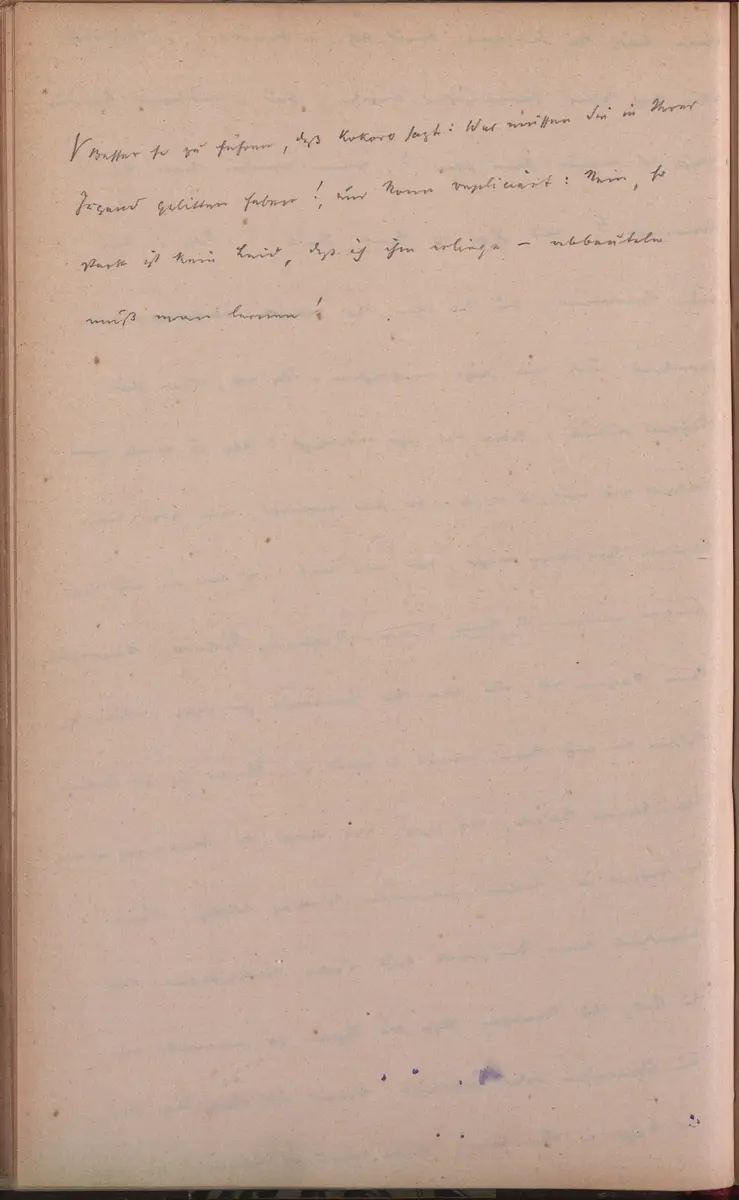 V Besser so zu führen, daß Kokoro sagt: Was müssen Sie in Ihrer
Jugend gelitten haben!, und Nonn repliciert: Nein, so
stark ist kein Leid, daß ich ihm erliege – abbeuteln
muß man lernen!